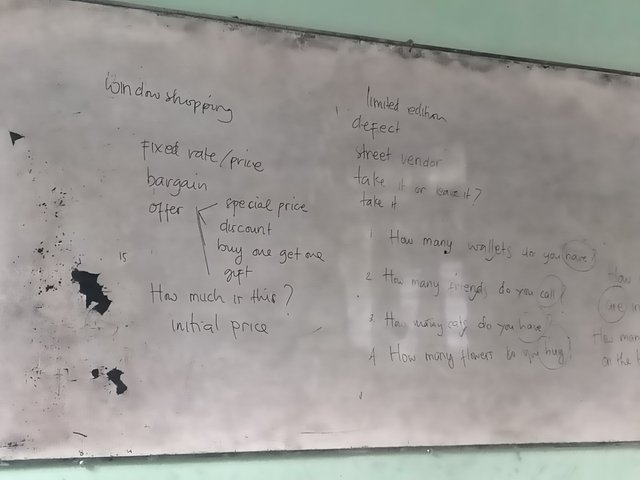 window shopping
Fixed rate/price
bargain
offer
special price
discount
buy one get one
gift
is
How much is this?
initial price
limited edition
defect
street vendor
take it or leave it?
take it
1 How many wallets do you have?
2 How many friends do you call?
3 How many cats do you have?
4 How many flowers do you buy?
How
are in
How many
on the